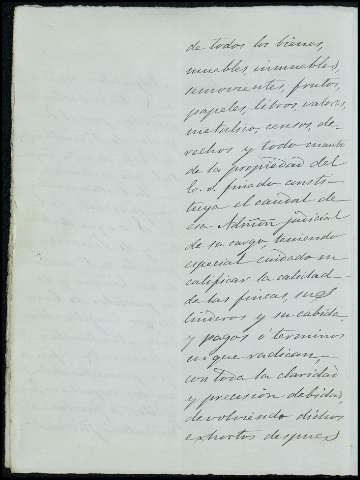 de todos los bienes,
muebles, inmuebles,
semovientes, frutos,
papeles, libros, valores,
metalico, censos, de-
rechos y todo cuanto
de la propiedad del
finado consti-
tuya el caudal de
esa Admón judicial
de su cargo teniendo
especial cuidado en
calificar la calidad
de las fincas, sus
linderos y su cabida,
y pagos ó terminos
en que radican,
con toda la claridad
y precision debidas,
devolviendo dichos
exhortos despues